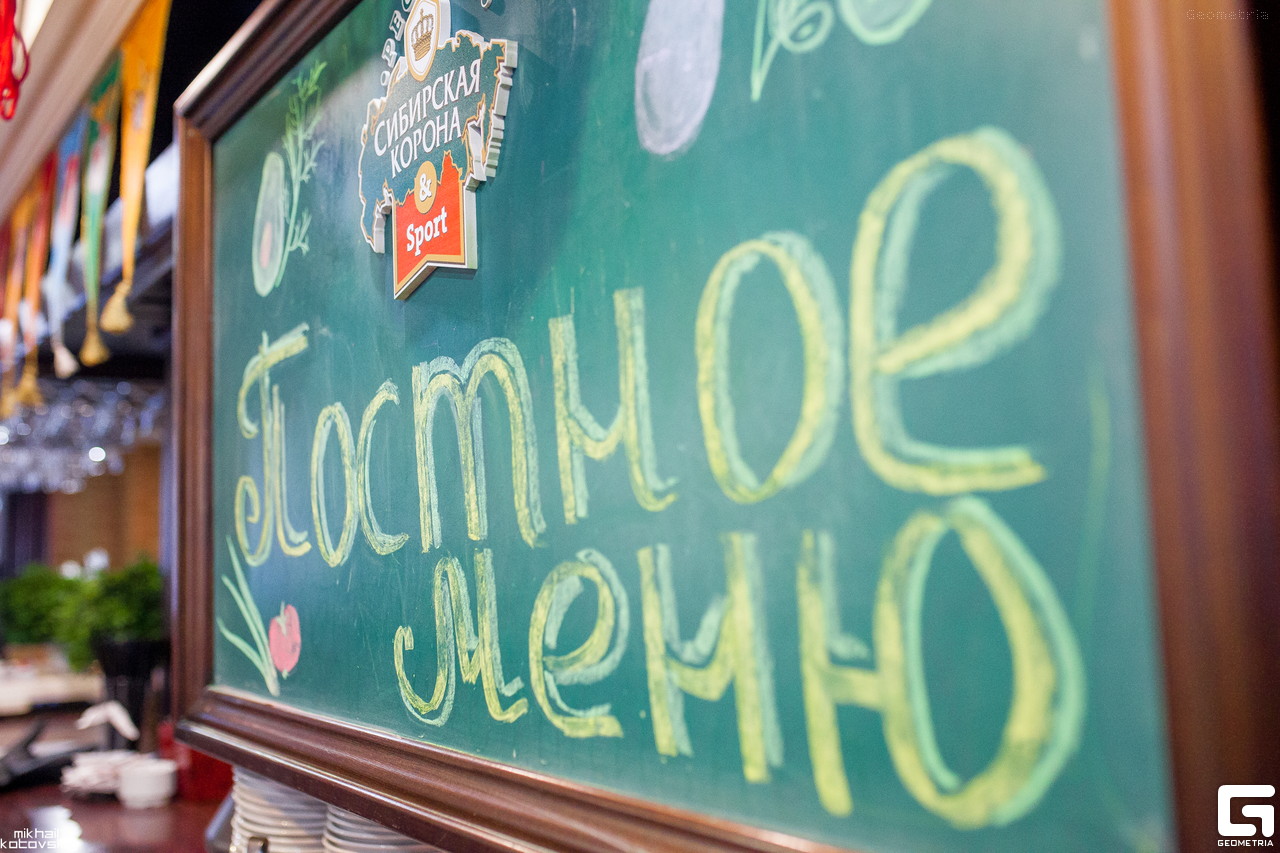 Geometria
СИБИРСКАЯ
КОРОНА
&
Sport
Постное
меню
mikhail
kotovs
GEOMETRIA